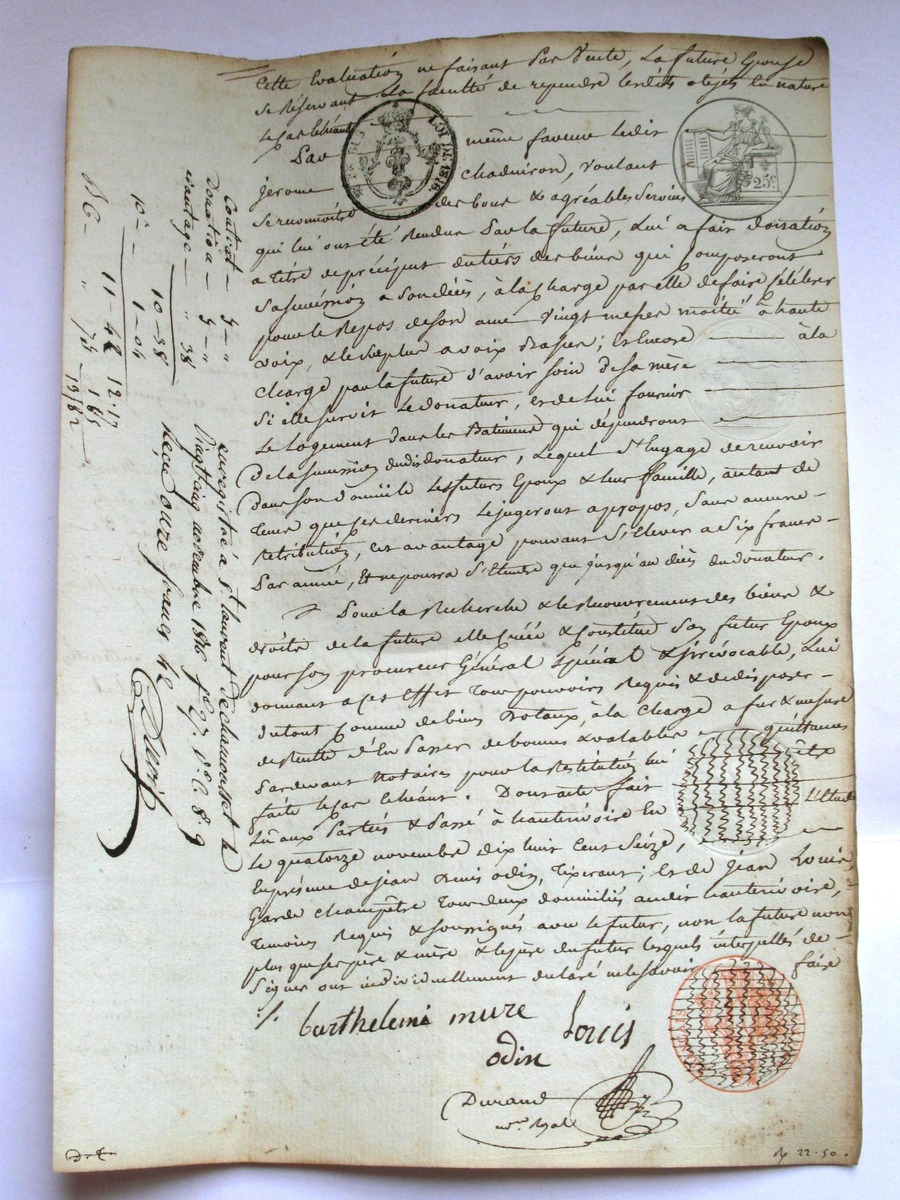 Cette Evaluation ne faisant Pas Vente, La future Epouse
Se Réservant La faculté de reprendre lesdits objets En nature
Le Cas Echéant
LOI DE 1816.
25c
Par même faveur Ledit
jerome Chadeiron, Voulant
Se reconnoitre des bons & agréables Services
qui lui ont été Rendus Par la future, Lui a fait Donation
a titre de préciput du tiers des biens qui Composeront
Sa Succession a Son décès, à la Charge par elle de faire Célébrer
pour le Repos de Son ame Vingt messes moitié à haute
Voix, & le Surplus a voix Basse; Et Encore à la
Charge par la future d'avoir Soin de Sa mère
Si elle Survit Le donateur, et de lui fournir
Le Logement dans les Batiments qui dépendront
De la Succession dudit donateur, Lequel S'Engage de recevoir
Dans Son domicile Les futurs Epoux & leur famille, autant de
tems que Ces derniers Le jugeront apropos, Sans aucune
retribution, cet avantage pouvant S'Elever a Six francs
Par année, Et ne pourra S'Etendre que jusqu'au décès du donateur.
Pour la Recherche & le Recouvrement des biens &
droits de la future elle Créé & Constitué Son futur Epoux
pour Son procureur Général Spécial & irrévocable, Lui
donnant a Cet Effet Tous pouvoirs Requis & de disposer
du tout Comme de biens Dotaux, à la Charge a fur & mesure
de Recette d'En Passer de bonnes & valables quittances
Pardevant Notaires pour la Restitution lui être
faite le Cas Echéant. Dont acte fait
Lu aux Parties & Passé à hauterivoire En L'Etude
Le quatorze novembre dix huit Cent Seize,
En présence de jean Denis odin, Tixerant; Et de Jean Louis,
Garde Champêtre Tous deux domiciliés audit hauterivoire,
temoins Requis & Soussignés avec le futur, non la future non
plus que Ses père & mère & le père du futur lesquels interpellés de
Signer ont individuellement déclaré ne le Savoir faire
barthelemi mure Louis
odin
Durand
nre Royal
Contrat 5 "
Donation 5 "
avantage " 38
10 - 38
1 - 04
11 - 42
enregistré à St laurent de chamousset le
Vingt cinq novembre 1816 fo 7 Vo C 8. 9
Reçu onze francs 42
22-50.